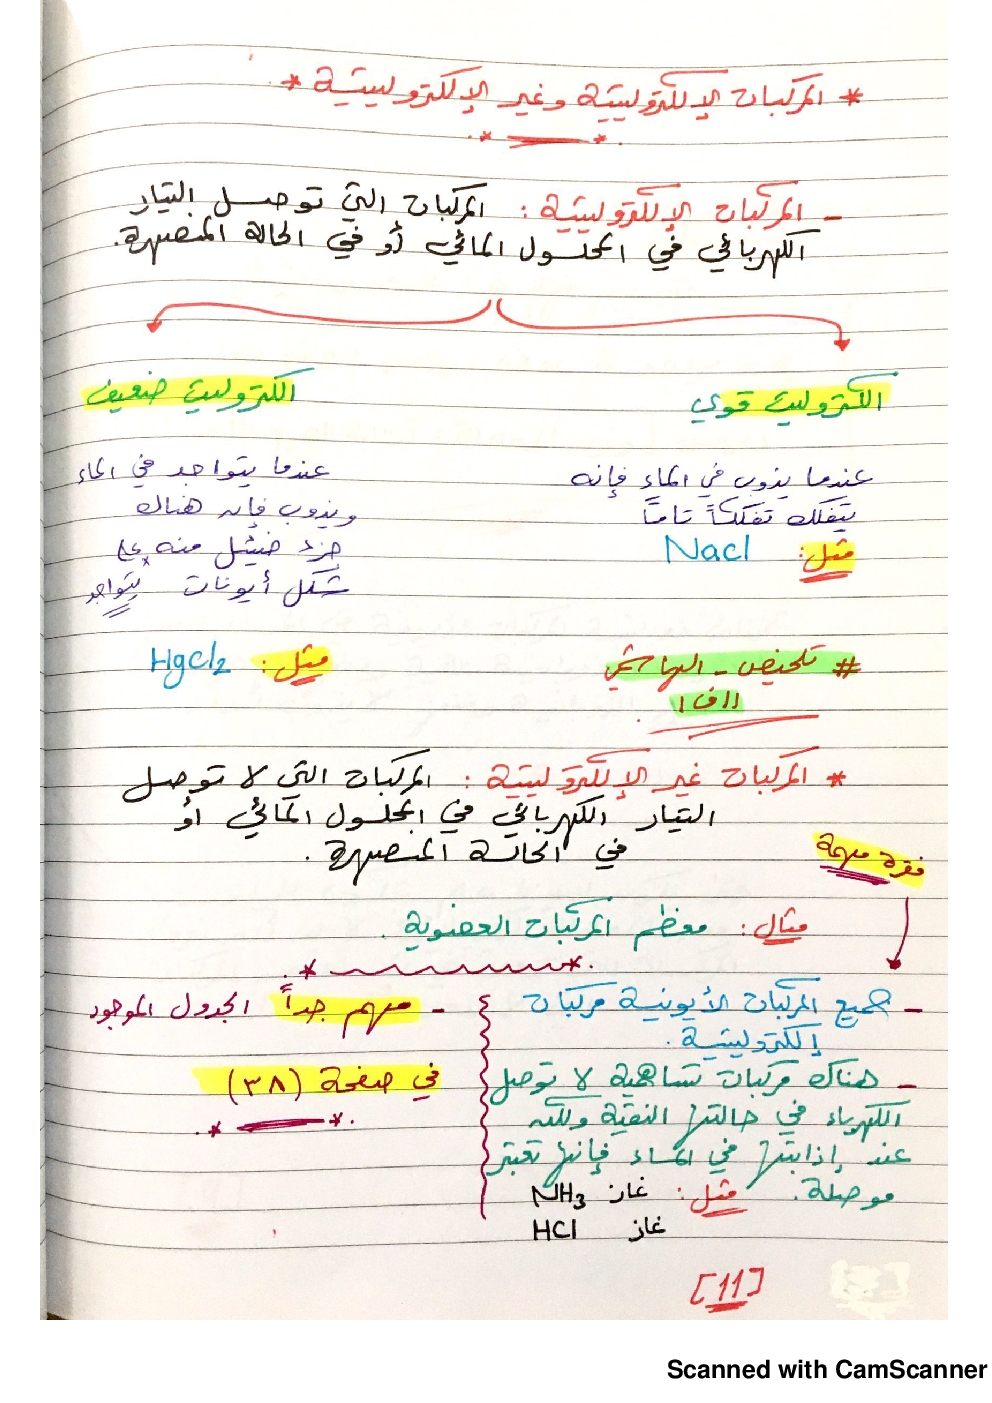 * المركبات الإلكتروليتية وغير الإلكتروليتية *
- المركبات الإلكتروليتية : المركبات التي توصل التيار
الكهربائي في المحلول المائي أو في الحالة المنصهرة.
الكتروليت قوي
عندما يذوب في الماء فإنه
يتفكك تفككاً تاماً
مثل: Nacl
الكتروليت ضعيف
عندما يتواجد في الماء
ويذوب فإنه هناك
جزء ضئيل منه يتواجد على
شكل أيونات
مثل: HgCl2
# تلخيص - الهاشمي
11ف1
* المركبات غير الإلكتروليتية : المركبات التي لا توصل
التيار الكهربائي في المحلول المائي أو
في الحالة المنصهرة .
مثال: معظم المركبات العضوية .
فقرة مهمة
- جميع المركبات الأيونية مركبات
إلكتروليتية .
- هناك مركبات تساهمية لا توصل
الكهرباء في حالتها النقية ولكنه
عند إذابتها في الماء فإنها تعتبر
موصلة. مثل: غاز NH3
غاز HCl
- مهم جداً الجدول الموجود
في صفحة (٣٨)
[11]
Scanned with CamScanner